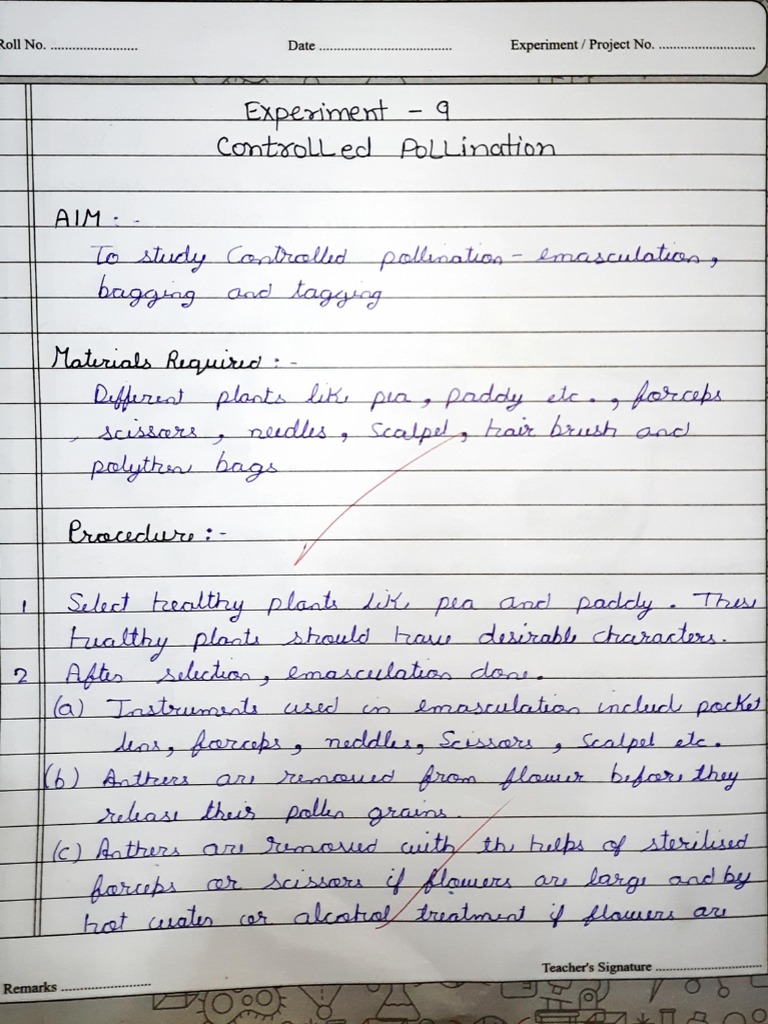 Roll No. ........................... Date ........................................ Experiment / Project No. .............................
Experiment - 9
Controlled Pollination
AIM : -
To study Controlled pollination - emasculation,
bagging and tagging
Materials Required : -
Different plants like pea, paddy etc., forceps
, scissors, needles, Scalpel, hair brush and
polythen bags
Procedure : -
1 Select healthy plants like pea and paddy. These
healthy plants should have desirable characters.
2 After selection, emasculation done.
(a) Instruments used in emasculation include pocket
lens, forceps, neddles, Scissors, Scalpel etc.
(b) Anthers are removed from flower before they
release their pollen grains.
(c) Anthers are removed with the helps of sterilised
forceps or scissors if flowers are large and by
hot water or alcohol treatment if flowers are
Teacher's Signature ................................
Remarks ............................